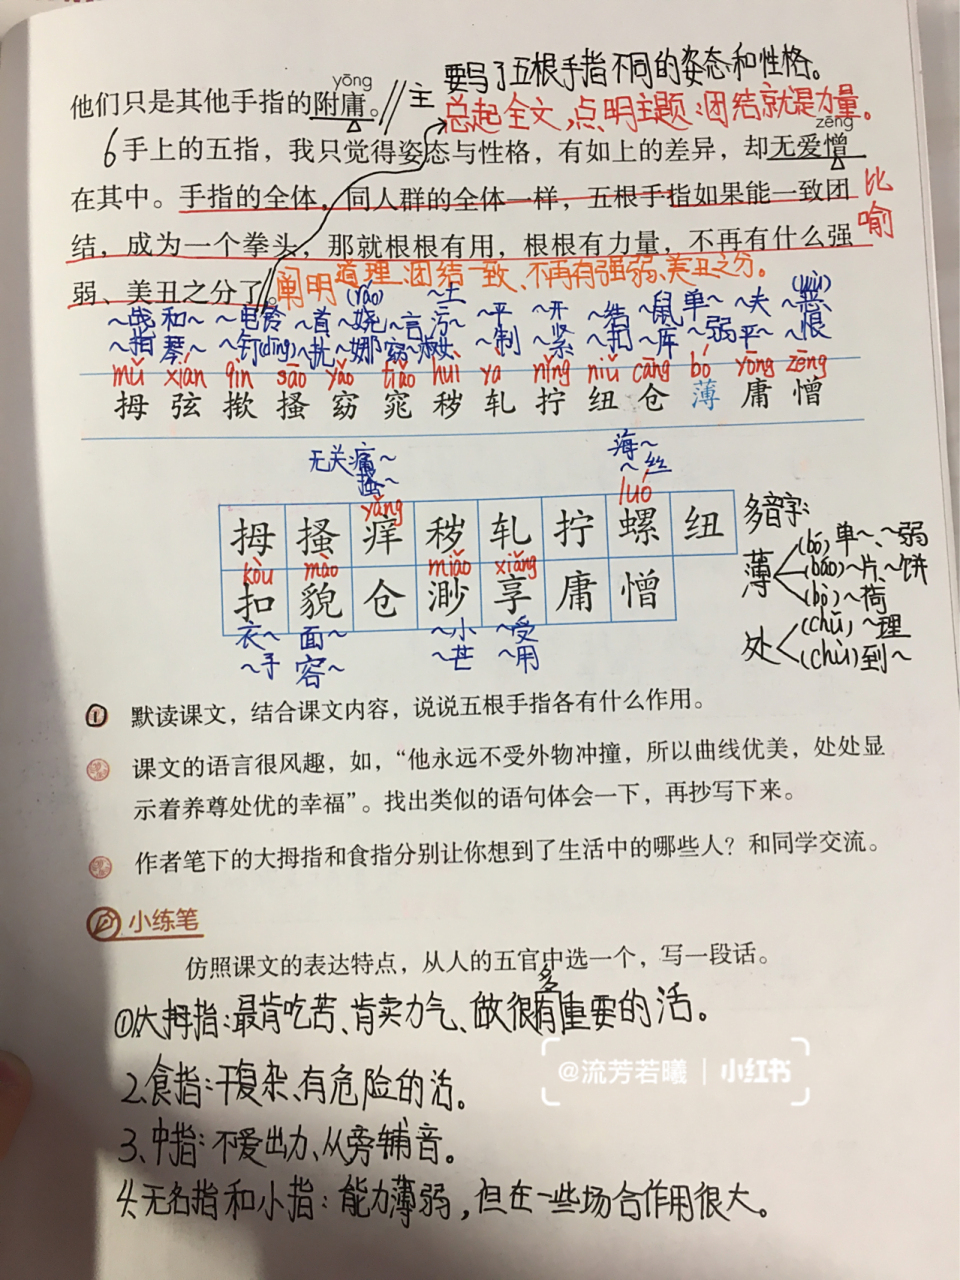 要写了五根手指不同的姿态和性格。
yōng
他们只是其他手指的附庸。//主
总起全文,点明主题:团结就是力量。
zēng
6 手上的五指，我只觉得姿态与性格，有如上的差异，却无爱憎
在其中。手指的全体，同人群的全体一样，五根手指如果能一致团
比喻
结，成为一个拳头，那就根根有用，根根有力量，不再有什么强
弱、美丑之分了。//阐明道理:团结一致、不再有强弱、美丑之分。
～战 和～ ～电铃 ～首 (yǎo)～娆 ～言 ～土污～ ～平 ～开 ～结 ～鼠 单～ ～夫 (wù)～恶
～指 琴～ ～钉(dīng) ～扰 ～娜 窈～淑女 ～制 ～紧 ～扣 ～库 ～弱 平～ ～恨
mǔ xián qìn sāo yǎo tiǎo huì yà nǐng niǔ cāng bó yōng zēng
拇 弦 揿 搔 窈 窕 秽 轧 拧 纽 仓 薄 庸 憎
无关痛～ 海～
搔～ ～丝
yǎng luó
拇 搔 痒 秽 轧 拧 螺 纽
kòu mào miǎo xiǎng
扣 貌 仓 渺 享 庸 憎
衣～ 面～ ～小 ～受
～手 容～ ～茫 ～用
多音字:
薄 (bó)单～、～弱
(báo)～片、～饼
(bò)～荷
处 (chǔ)～理
(chù)到～
① 默读课文，结合课文内容，说说五根手指各有什么作用。
课文的语言很风趣，如，“他永远不受外物冲撞，所以曲线优美，处处显
示着养尊处优的幸福”。找出类似的语句体会一下，再抄写下来。
作者笔下的大拇指和食指分别让你想到了生活中的哪些人？和同学交流。
小练笔
仿照课文的表达特点，从人的五官中选一个，写一段话。
①大拇指:最肯吃苦、肯卖力气、做很多有重要的活。
2.食指:干复杂、有危险的活。
3.中指:不爱出力、从旁辅音。
4.无名指和小指:能力薄弱,但在一些场合作用很大。
@流芳若曦 | 小红书